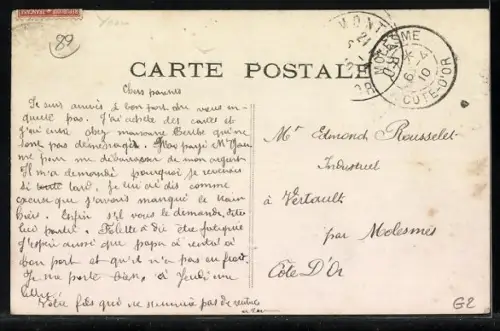 89
CARTE POSTALE
MOLESME
6 - 4
10
COTE-D'OR
MONT
21
Chers parents
Je suis arrivé à bon port ne vous in-
quiète pas. J'ai acheté des cartes et
j'ai été chez madame qu'ne
sont pas déménagés. payé Mr
me pour me débarrasser de mon argent
Il m'a demandé pourquoi je revenais
si tard. Je lui ai dis comme
excuse que j'avais manqué le train
hier. Enfin s'il vous le demande,
lui parler. a dû être fatiguée
J'espère aussi que papa a rentré à
bon port et qu'il n'a pas eu froid
Je me porte bien, à Jeudi une
lettre.
Votre fils qui ne pas de rentrer
Mr Edmond Rousselet
Industriel
à Vertault
par Molesmes
Côte D'Or
G2